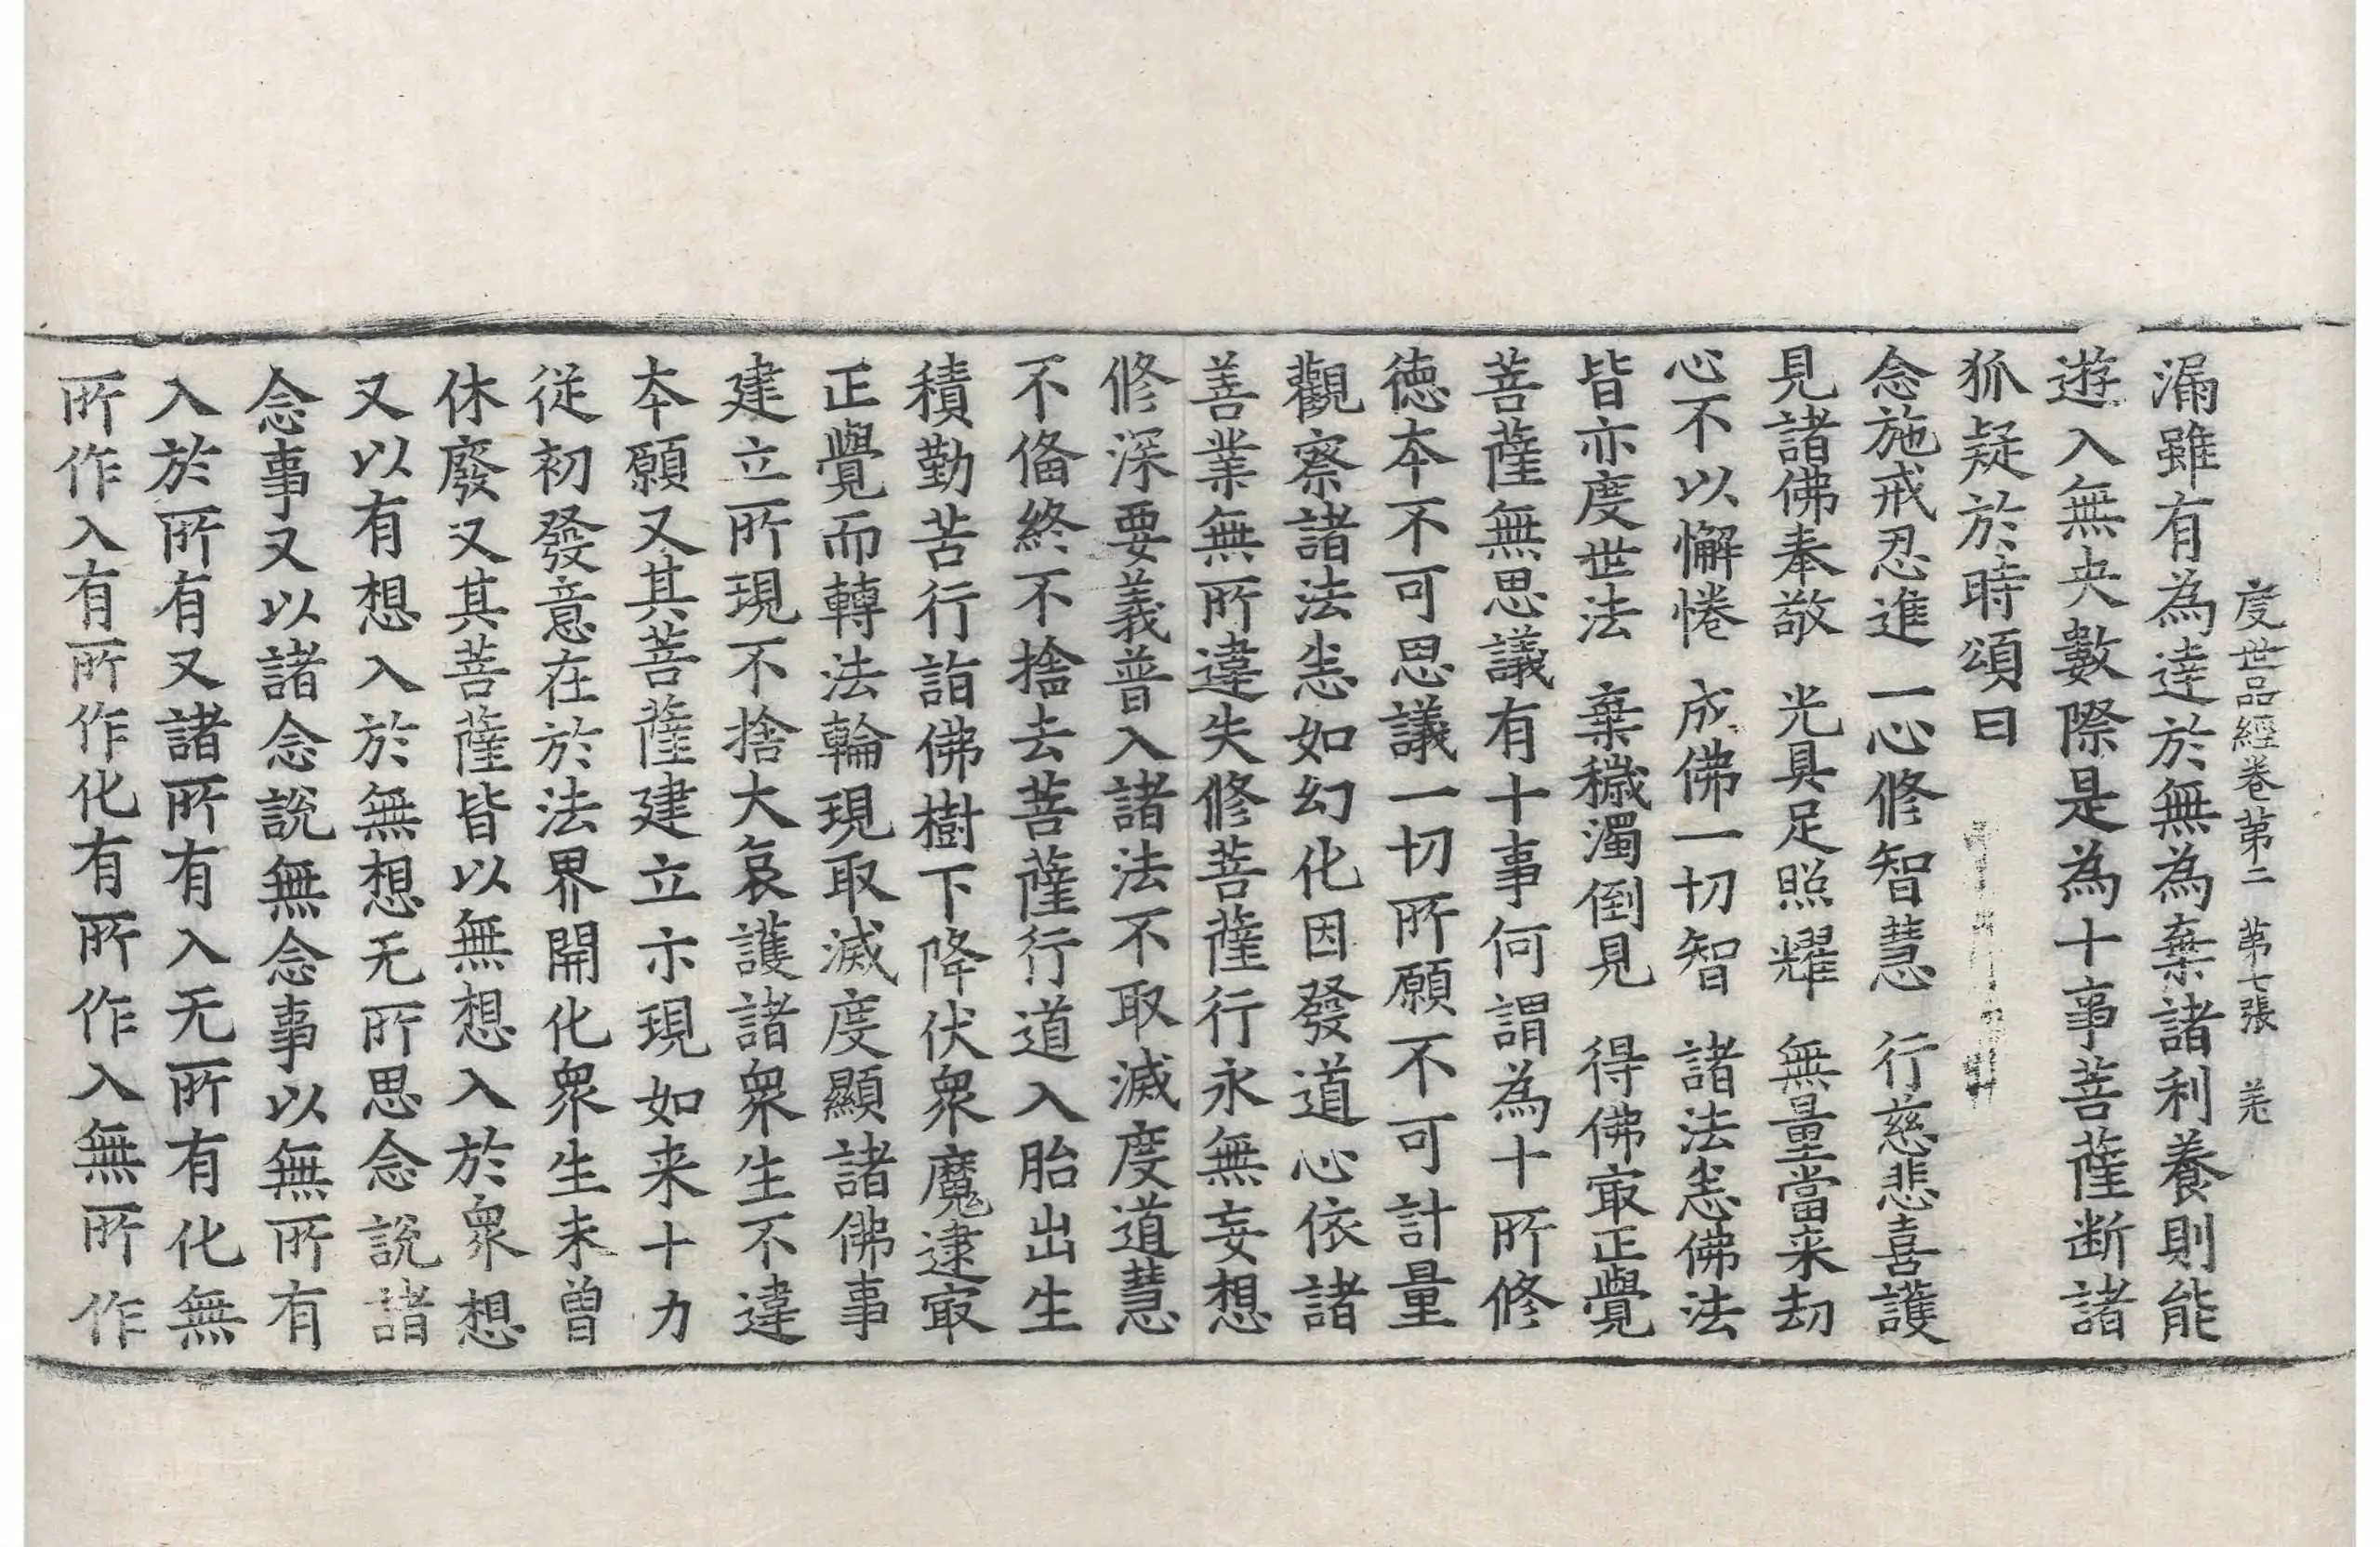 度世品經卷第二　第七張　羌
漏雖有為達於無為棄諸利養則能
遊入無央數際是為十事菩薩断諸
狐疑於時頌曰
念施戒忍進　一心修智慧　行慈悲喜護
見諸佛奉敬　光具足照耀　無量當来劫
心不以懈惓　成佛一切智　諸法恙佛法
皆亦度世法　棄穢濁倒見　得佛㝡正覺
菩薩無思議有十事何謂為十所修
徳夲不可思議一切所願不可計量
觀察諸法恙如幻化因發道心依諸
善業無所違失修菩薩行永無妄想
修深要義普入諸法不取滅度道慧
不俻終不捨去菩薩行道入胎出生
積勤苦行詣佛樹下降伏衆魔逮㝡
正覺而轉法輪現取滅度顯諸佛事
建立所現不捨大哀護諸衆生不違
夲願又其菩薩建立示現如来十力
從初發意在於法界開化衆生未曽
休廢又其菩薩皆以無想入於衆想
又以有想入於無想无所思念說諸
念事又以諸念說無念事以無所有
入於所有又諸所有入无所有化無
所作入有所作化有所作入無所作